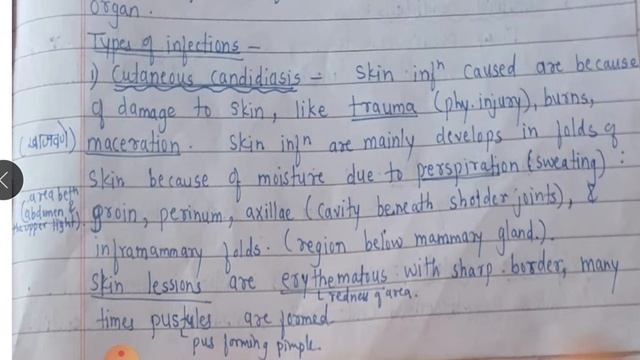 organ.
Types of infections -
1) Cutaneous candidiasis - skin infn caused are because
of damage to skin, like trauma (phy. injury), burns,
maceration. skin infn are mainly develops in folds of
skin because of moisture due to perspiration (sweating):
(area betn
(abdomen &
the upper
groin, perinum, axillae (cavity beneath sholder joints), &
inframammary folds. (region below mammary gland.).
skin lessions are erythematous with sharp border, many
redness of area.
times pustules are formed
pus forming pimple.